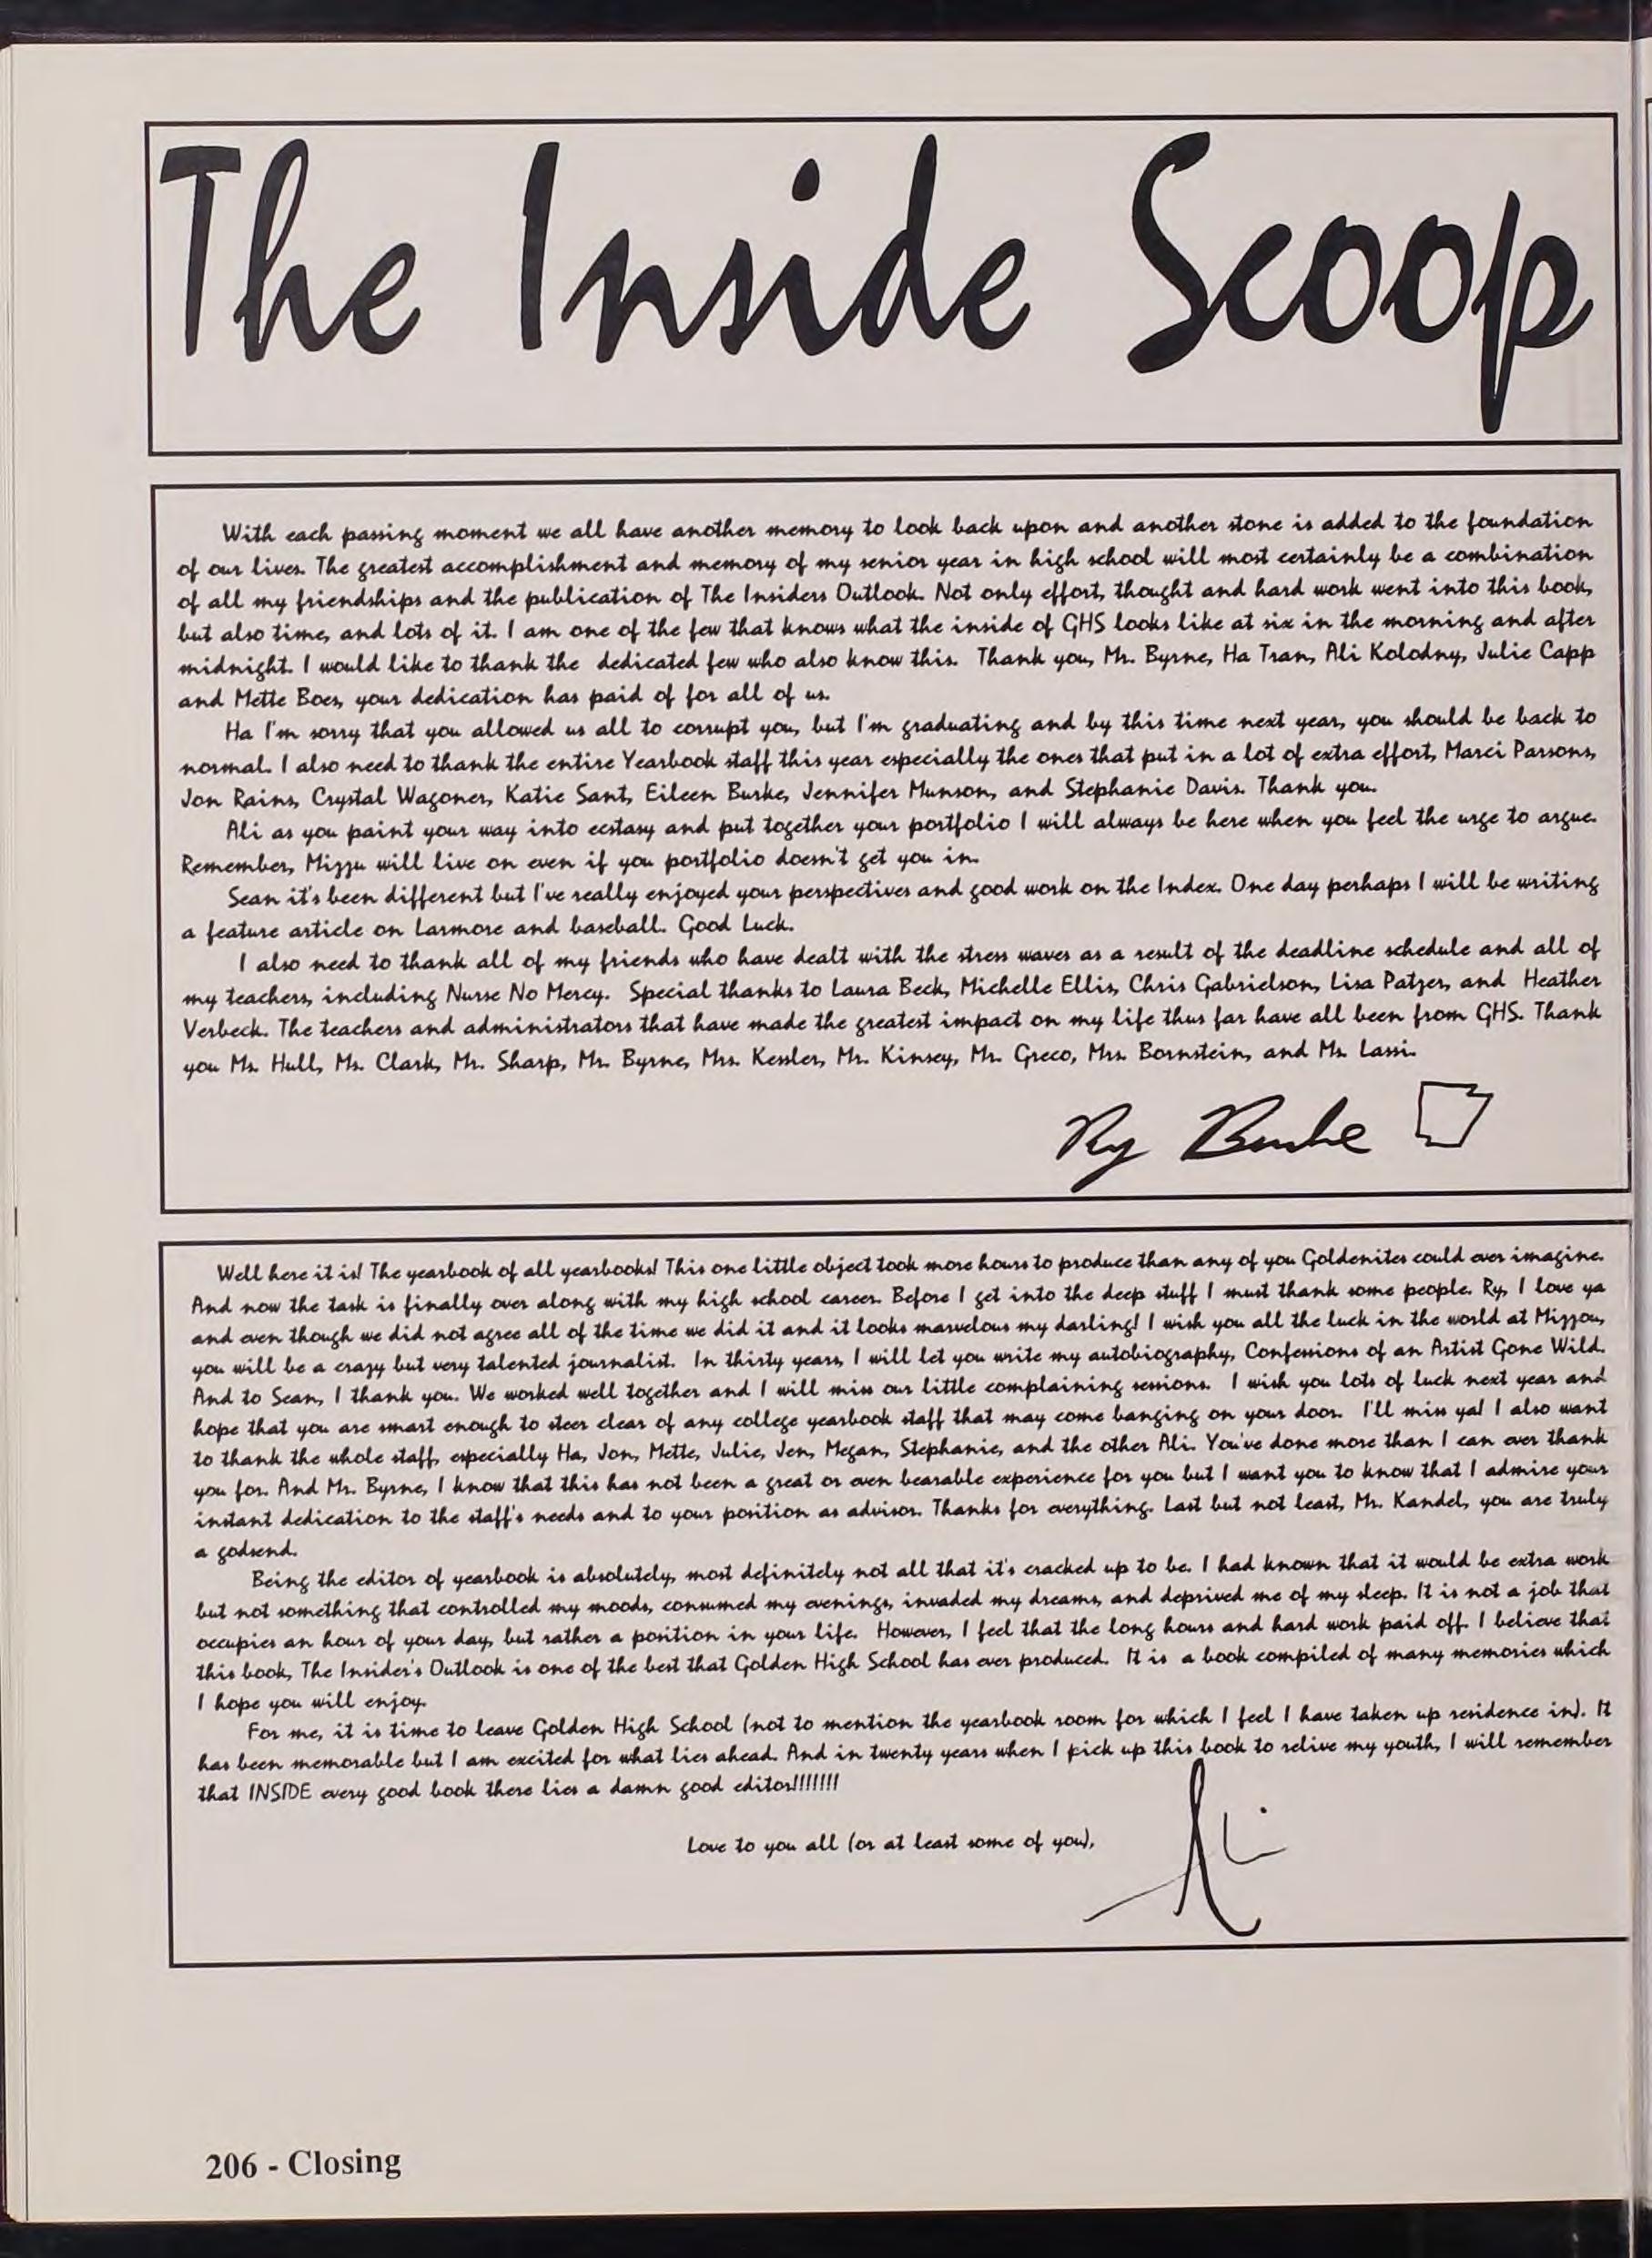 The Inside Scoop
With each passing moment we all have another memory to look back upon and another stone is added to the foundation
of our lives. The greatest accomplishment and memory of my senior year in high school will most certainly be a combination
of all my friendships and the publication of The Insiders Outlook. Not only effort, thought and hard work went into this book,
but also time, and lots of it. I am one of the few that knows what the inside of GHS looks like at six in the morning and after
midnight. I would like to thank the dedicated few who also know this. Thank you, Mr. Byrne, Ha Tran, Ali Kolodny, Julie Capp
and Mette Boes, your dedication has paid of for all of us.
Ha I'm sorry that you allowed us all to corrupt you, but I'm graduating and by this time next year, you should be back to
normal. I also need to thank the entire Yearbook staff this year especially the ones that put in a lot of extra effort, Marci Parsons,
Jon Rains, Crystal Wagoner, Katie Sant, Eileen Burke, Jennifer Munson, and Stephanie Davis. Thank you.
Ali as you paint your way into ecstasy and put together your portfolio I will always be here when you feel the urge to argue.
Remember, Mizzu will live on even if you portfolio doesn't get you in.
Sean it's been different but I've really enjoyed your perspectives and good work on the Index. One day perhaps I will be writing
a feature article on Larmore and baseball. Good Luck.
I also need to thank all of my friends who have dealt with the stress waves as a result of the deadline schedule and all of
my teachers, including Nurse No Mercy. Special thanks to Laura Beck, Michelle Ellis, Chris Gabrielson, Lisa Patzer, and Heather
Verbeck. The teachers and administrators that have made the greatest impact on my life thus far have all been from GHS. Thank
you Ms. Hull, Ms. Clark, Mr. Sharp, Mr. Byrne, Mrs. Kessler, Mr. Kinsey, Mr. Greco, Mrs. Bornstein, and Ms. Lassi.
Ry Burke
Well here it is! The yearbook of all yearbooks! This one little object took more hours to produce than any of you Goldenites could ever imagine.
And now the task is finally over along with my high school career. Before I get into the deep stuff I must thank some people. Ry, I love ya
and even though we did not agree all of the time we did it and it looks marvelous my darling! I wish you all the luck in the world at Mizzou,
you will be a crazy but very talented journalist. In thirty years, I will let you write my autobiography, Confessions of an Artist Gone Wild.
And to Sean, I thank you. We worked well together and I will miss our little complaining sessions. I wish you lots of luck next year and
hope that you are smart enough to steer clear of any college yearbook staff that may come banging on your door. I'll miss ya! I also want
to thank the whole staff, especially Ha, Jon, Mette, Julie, Jen, Megan, Stephanie, and the other Ali. You've done more than I can ever thank
you for. And Mr. Byrne, I know that this has not been a great or even bearable experience for you but I want you to know that I admire your
instant dedication to the staff's needs and to your position as advisor. Thanks for everything. Last but not least, Mr. Kandel, you are truly
a godsend.
Being the editor of yearbook is absolutely, most definitely not all that it's cracked up to be. I had known that it would be extra work
but not something that controlled my moods, consumed my evenings, invaded my dreams, and deprived me of my sleep. It is not a job that
occupies an hour of your day, but rather a position in your life. However, I feel that the long hours and hard work paid off. I believe that
this book, The Insider's Outlook is one of the best that Golden High School has ever produced. It is a book compiled of many memories which
I hope you will enjoy.
For me, it is time to leave Golden High School (not to mention the yearbook room for which I feel I have taken up residence in). It
has been memorable but I am excited for what lies ahead. And in twenty years when I pick up this book to relive my youth, I will remember
that INSIDE every good book there lies a damn good editor!!!!!!!
Love to you all (or at least some of you),
Ali
206 - Closing